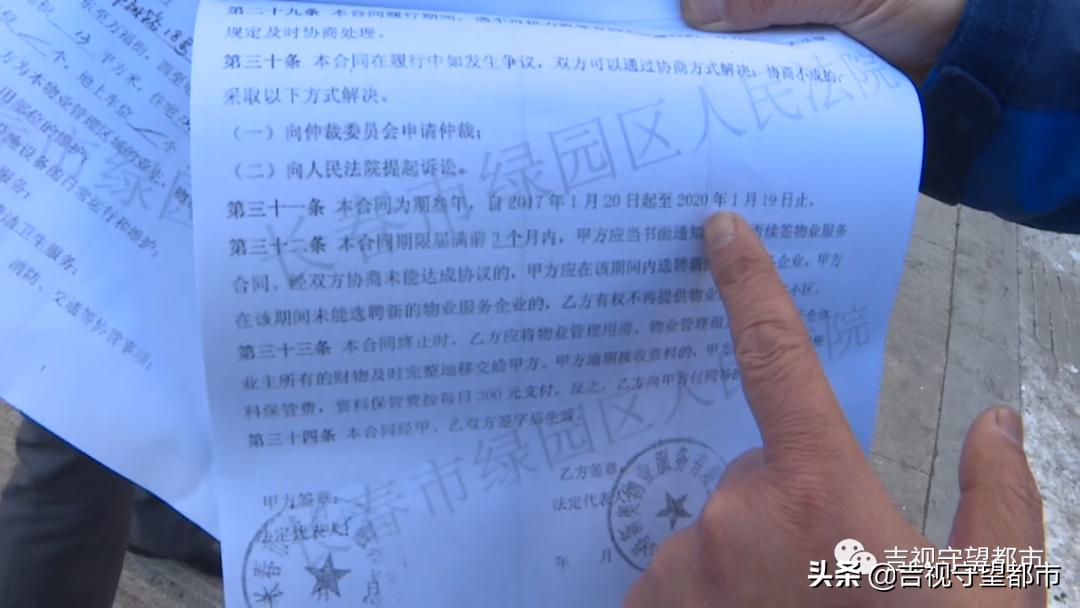 第二十九条 本合同履行期间,
规定及时协商处理。
第三十条 本合同在履行中如发生争议,双方可以通过协商方式解决;协商不成的,
采取以下方式解决。
(一)向仲裁委员会申请仲裁;
(二)向人民法院提起诉讼。
第三十一条 本合同为期叁年,自2017年1月20日起至2020年1月19日止。
第三十二条 本合同期限届满前3个月内,甲方应当书面通知 否续签物业服务
合同。经双方协商未能达成协议的,甲方应在该期间内选聘新 企业,甲方
在该期间未能选聘新的物业服务企业的,乙方有权不再提供物业 小区。
第三十三条 本合同终止时,乙方应将物业管理用房、物业管理相
业主所有的财物及时完整地移交给甲方。甲方逾期接收资料的,甲方 费
料保管费,资料保管费按每日300元支付。反之,乙方向甲方付同等
第三十四条 本合同经甲、乙双方签字后生效。
甲方签章:
法定代表人:
乙方签章:
法定代表人
年 月
长春市绿园区人民法院
长春市绿园区人民法院
平方米,
个,地上车位 个
方为本物业管理区域的业主、
用部位的维护;
设备的日常运行和维护;
服务;
清洁卫生服务;
消防、交通等协管事项;
物业服务
长春
吉视守望都市
头条 @吉视守望都市